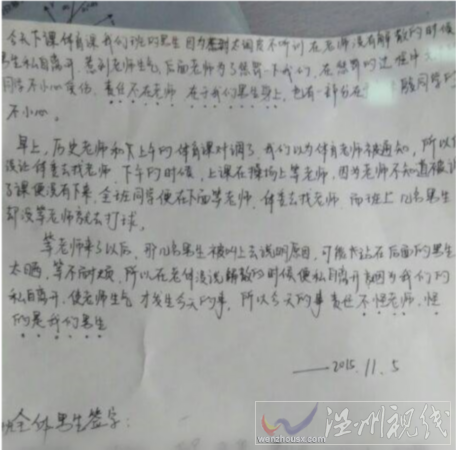 今天下课体育课我们班的男生因为感到太困良不听训在老师没有解散的时候
男生私自离开,惹到老师生气,后面老师为了惩罚一下我们,在惩罚的过程中
同学不小心受伤,责任不在老师,在于我们男生身上,也有一部分在 同学的
不小心。
早上,历史老师和下上午的体育课对调了,我们以为体育老师被通知,所以
没让体委去找老师,下午的时候,上课在操场上等老师,因为老师不知道被调
了课便没有下来,全班同学便在下面等老师,体委去找老师,而班上几名男生
却没等老师就去打球。
等老师来了以后,那几名男生被叫上去说明原因,可能我站在后面的男生
太晒,等不耐烦,所以在老师没说解散的时候便私自离开,因为我们的
私自离开,使老师生气,才发生今天的事,所以今天的事责任不怪老师,怪
的是我们男生
——2015.11.5
班全体男生签字:
温州视线
www.wenzhousx.com